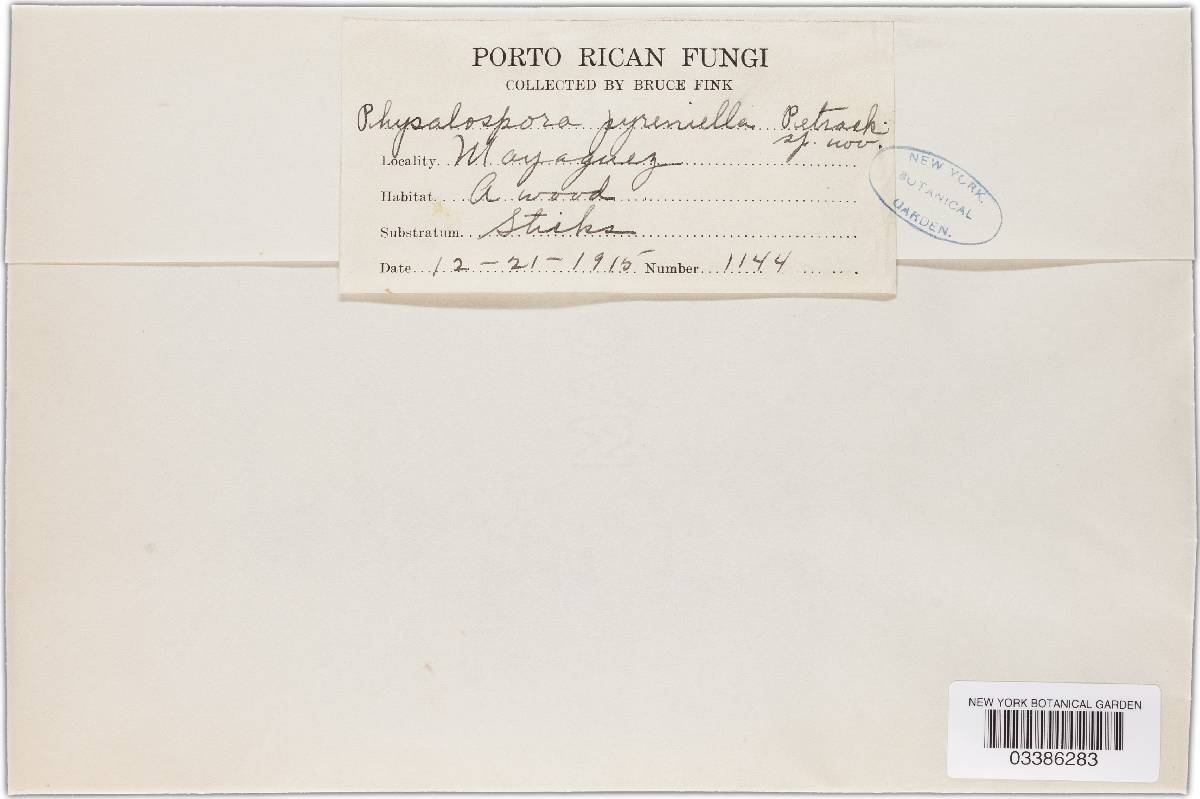 PORTO RICAN FUNGI
COLLECTED BY BRUCE FINK
Physalospora pyreniella Petrak
sp. nov.
Locality Mayaguez
Habitat A wood
Substratum Sticks
Date 12-21-1915 Number 1144
NEW YORK
BOTANICAL
GARDEN.
NEW YORK BOTANICAL GARDEN
03386283